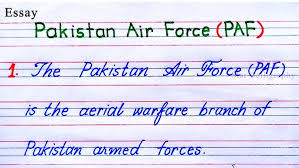 Essay
Pakistan Air Force (PAF)
1. The Pakistan Air Force (PAF)
is the aerial warfare branch of
Pakistan armed forces.